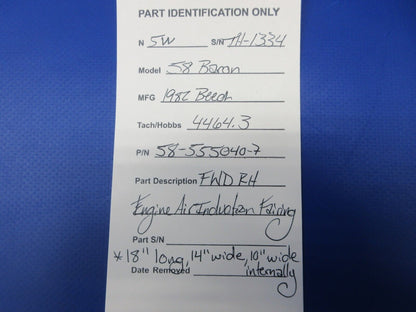 PART IDENTIFICATION ONLY
N 5W S/N TH-1334
Model 58 Baron
MFG 1982 Beech
Tach/Hobbs 4464.3
P/N 58-555040-7
Part Description FWD RH
Engine Air Induction Fairing
Part S/N
*18" long, 14" wide, 10" wide
Date Removed internally